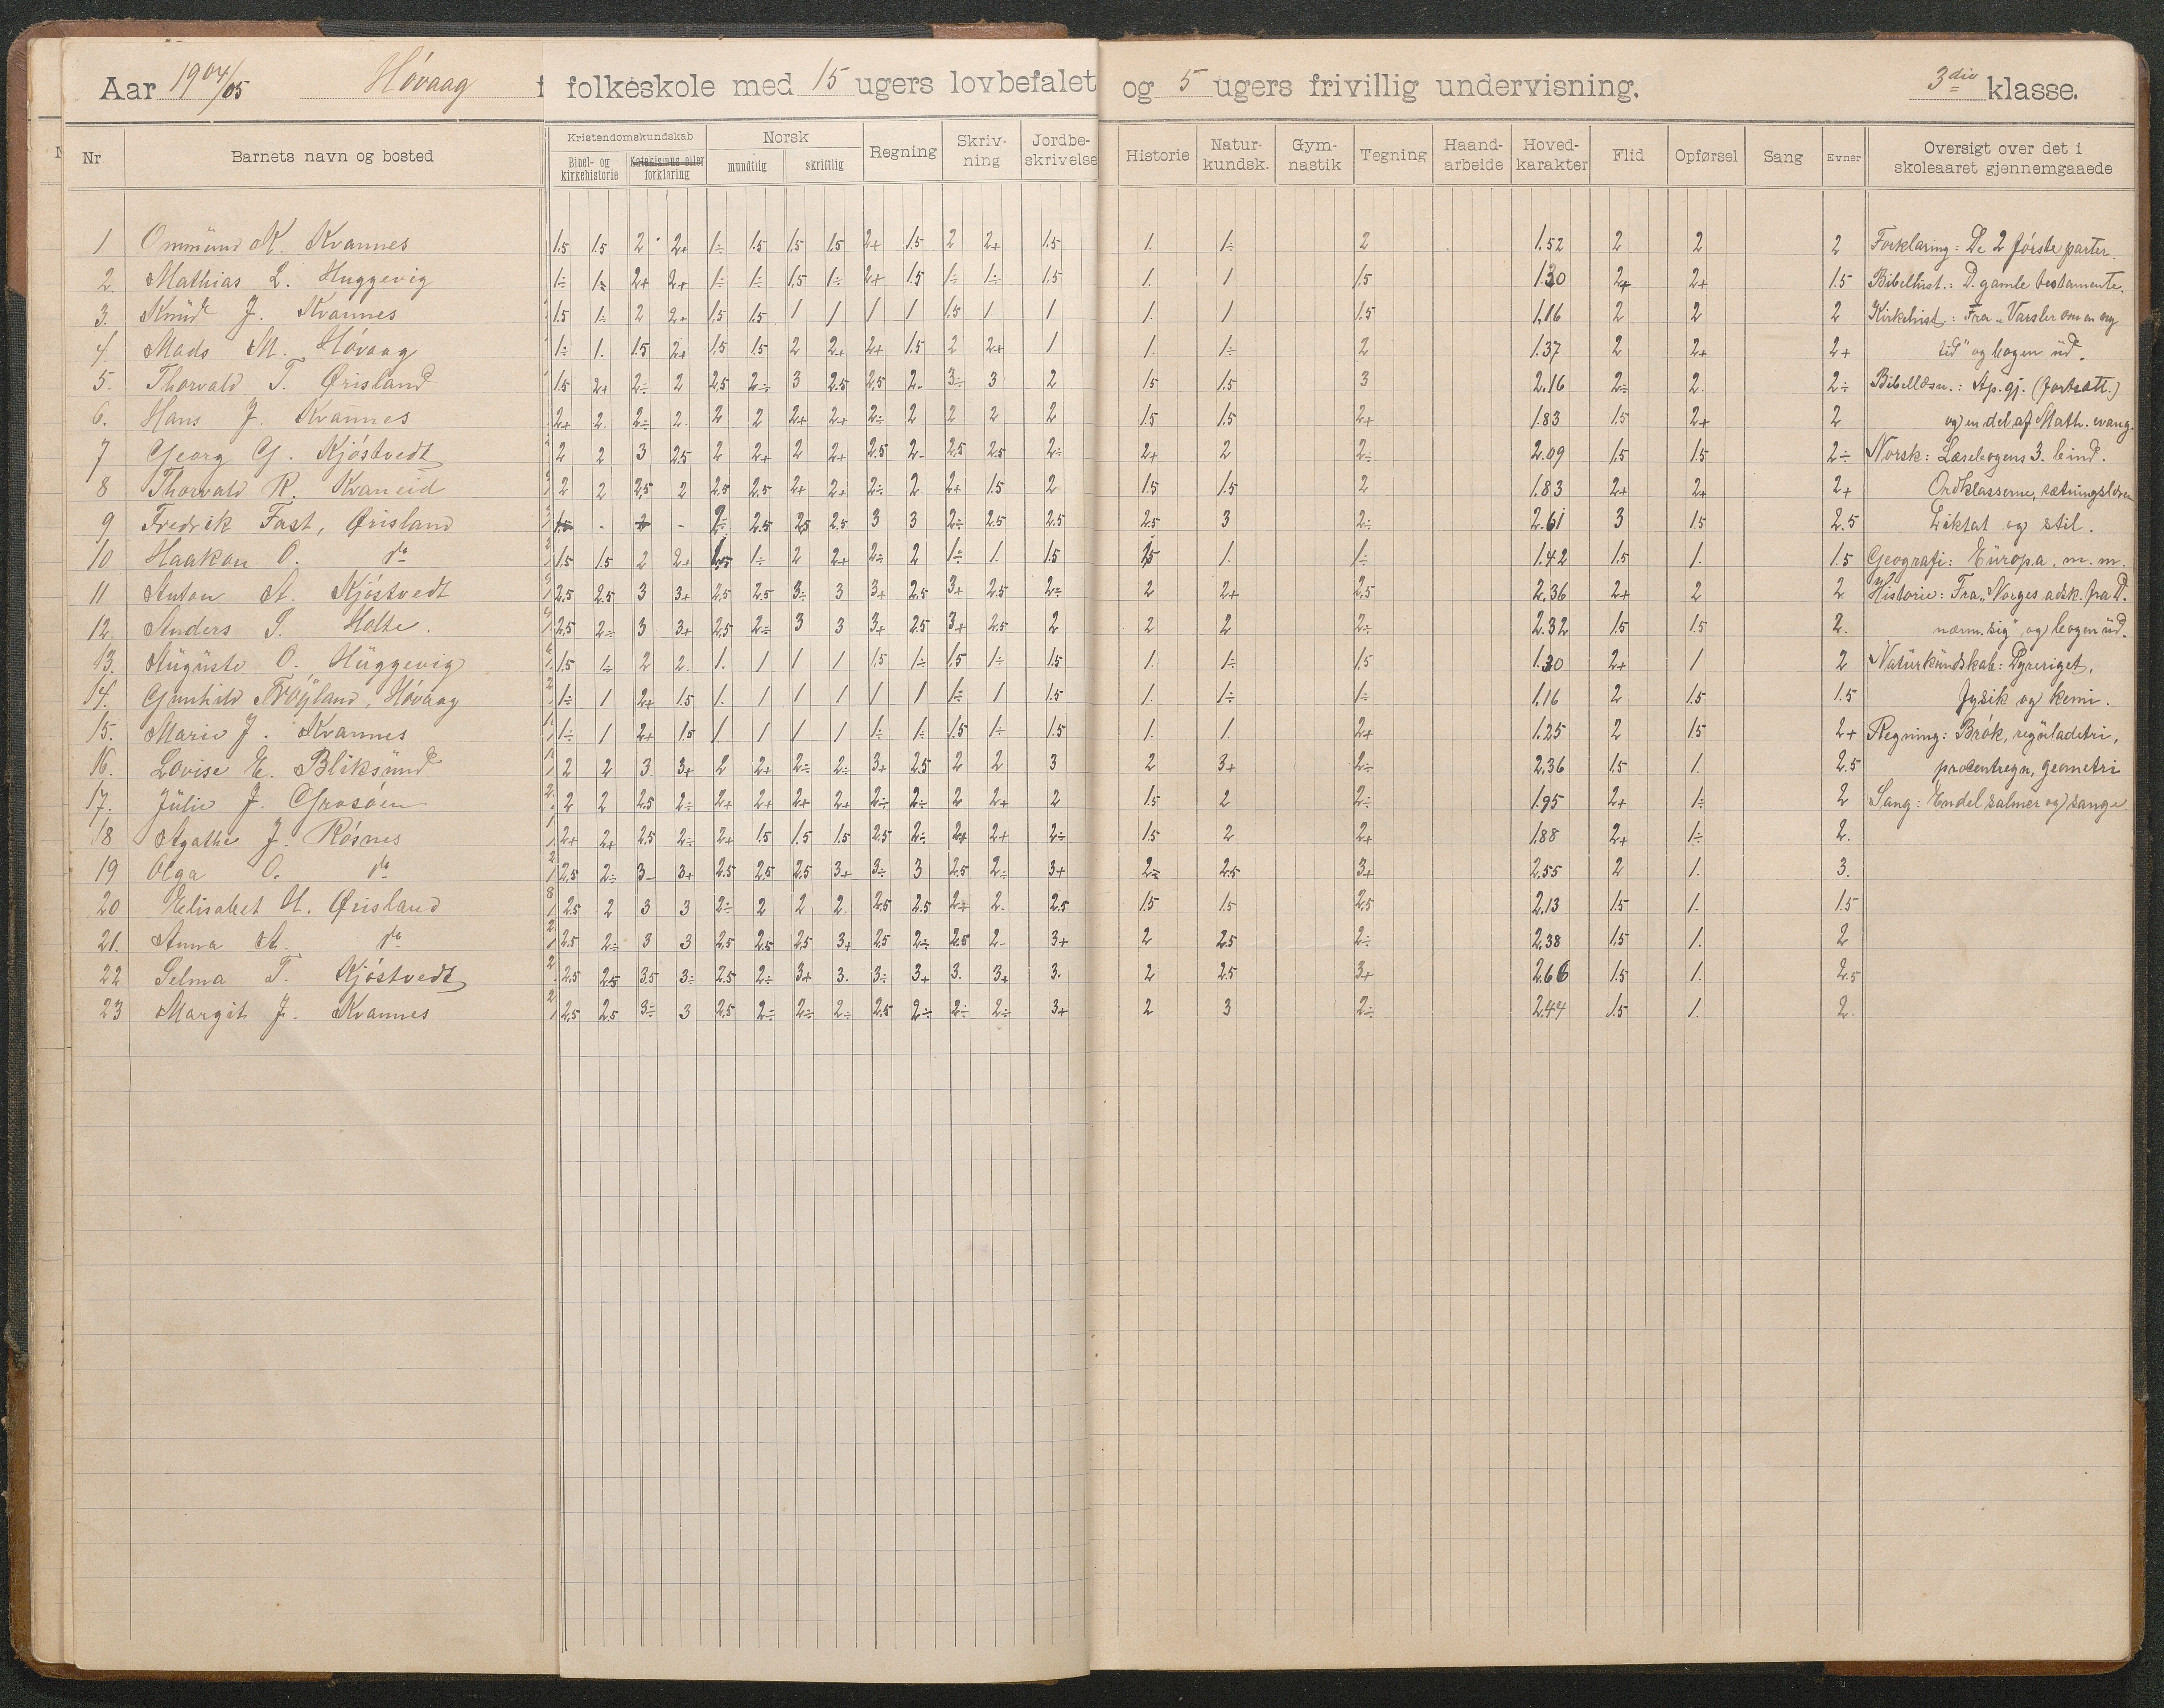 Aar 1904/05 Høvaag f folkeskole med 15 ugers lovbefalet og 5 ugers frivillig undervisning. 3die klasse.
Nr Barnets navn og bosted Kristendomskundskab Bibel- og kirkehistorie Katekismus eller forklaring Norsk mundtlig skriftlig Regning Skriv-ning Jordbe-skrivelse Historie Natur-kundsk. Gym-nastik Tegning Haand-arbeide Hoved-karakter Flid Opførsel Sang Evner Oversigt over det i skoleaaret gjennemgaaede
1 Ommund K. Kvannes 1.5 1.5 2 2+ 1÷ 1.5 1.5 1.5 2+ 1.5 2 2+ 1.5 1. 1÷ 2 1.52 2 2 2 Forklaring: De 2 første parter.
2. Mathias L. Huggevig 1÷ 1÷ 2+ 2+ 1÷ 1÷ 1.5 1÷ 2+ 1.5 1÷ 1÷ 1.5 1. 1 1.5 1.30 2+ 2+ 1.5 Bibelhist.: D. gamle testamente.
3. Knud J. Kvannes 1.5 1÷ 2 2+ 1.5 1.5 1 1 1 1 1.5 1 1 1. 1 1.5 1.16 2 2 2 Kirkehist.: Fra "Varsler om en ny
4. Mads M. Høvaag 1÷ 1. 1.5 2+ 1.5 1.5 2 2+ 2+ 1.5 2 2+ 1 1. 1÷ 2 1.37 2 2+ 2+ tid" og bogen ud.
5. Thorvald T. Ørisland 1.5 2+ 2÷ 2 2.5 2÷ 3 2.5 2.5 2- 3÷ 3 2 1.5 1.5 3 2.16 2÷ 2. 2÷ Bibellæsn.: Ap.gj. (fortsatt.)
6. Hans J. Kvannes 2+ 2. 2÷ 2. 2 2 2+ 2+ 2÷ 2 2 2 2 1.5 1.5 2+ 1.83 1.5 2+ 2 og en del af Math. evang.
7 Georg G. Kjøstvedt 2 2 3 2.5 2 2+ 2 2+ 2.5 2- 2.5 2.5 2÷ 2+ 2 2÷ 2.09 1.5 1.5 2÷ Norsk: Læsebogens 3. bind.
8 Thorvald R. Kvaneid 2 2 2.5 2 2.5 2.5 2+ 2+ 2÷ 2 2+ 1.5 2 1.5 1.5 2 1.83 2+ 2+ 2+ Ordklasserne, sætningslæren
9 Fredrik Fast, Ørisland 1.5 - - 2÷ 2.5 2.5 2.5 3 3 2÷ 2.5 2.5 2.5 3 2÷ 2.61 3 1.5 2.5 Diktat og stil.
10 Haakon O. do 1.5 1.5 2 2+ 1.5 1÷ 2 2+ 2÷ 2 1÷ 1. 1.5 1. 1÷ 1.42 1.5 1. 1.5 Geografi: Europa, m. m.
11 Anton A. Kjøstvedt 2.5 2.5 3 3+ 2.5 2.5 3÷ 3 3+ 2.5 3+ 2.5 2÷ 2 2+ 2.5 2.36 2+ 2 2 Historie: Fra "Norges adsk. fra D.
12. Anders S. Holte. 2.5 2÷ 3 3+ 2.5 2÷ 3 3 3+ 2.5 3+ 2.5 2 2 2 2÷ 2.32 1.5 1.5 2. nærm. sig" og bogen ud.
13. Auguste O. Huggevig 1.5 1÷ 2 2. 1. 1 1 1 1.5 1÷ 1.5 1÷ 1.5 1. 1÷ 1.5 1.30 2+ 1 2 Naturkundskab: Dyreriget,
14. Gunhild Frøyland, Høvaag 1÷ 1 2+ 1.5 1. 1 1 1 1 1 1÷ 1 1.5 1. 1÷ 1÷ 1.16 2 1.5 1.5 fysik og kemi.
15. Marie J. Kvannes 1÷ 1 2+ 1.5 1. 1 1 1 1÷ 1÷ 1.5 1÷ 1.5 1. 1. 2+ 1.25 2 1.5 2+ Regning: Brøk, reguladetri,
16. Lovise E. Bliksund 2 2 3 3+ 2 2+ 2÷ 2÷ 3+ 2.5 2 2 3 2 3+ 2÷ 2.36 1.5 1. 2.5 procentregn, geometri
17. Julie J. Grosøen 2 2 2.5 2÷ 2+ 2+ 2+ 2+ 2÷ 2÷ 2 2+ 2 1.5 2 2÷ 1.95 2+ 1÷ 2 Sang: Endel salmer og sange
18 Agathe J. Røsnes 2+ 2+ 2.5 2÷ 2+ 1.5 1.5 1.5 2.5 2÷ 2+ 2+ 2÷ 1.5 2 2+ 1.88 2+ 1÷ 2.
19 Olga O. do 2.5 2÷ 3- 3+ 2.5 2.5 2.5 3+ 3÷ 3 2.5 2÷ 3+ 2÷ 2.5 3+ 2.55 2 1. 3.
20 Elisabet U. Ørisland 2.5 2 3 3 2÷ 2 2 2. 2.5 2.5 2÷ 2. 2.5 1.5 1.5 2.5 2.13 1.5 1. 1.5
21. Anna A. do 2.5 2÷ 3 3 2.5 2.5 2.5 3+ 2.5 2÷ 2.5 2- 3+ 2 2.5 2÷ 2.38 1.5 1. 2
22 Selma T. Kjøstvedt 2.5 2.5 3.5 3÷ 2.5 2÷ 3+ 3. 3÷ 3+ 3. 3+ 3. 2 2.5 3+ 2.66 1.5 1. 2.5
23 Margit J. Kvannes 2.5 2.5 3÷ 3 2.5 2÷ 2÷ 2÷ 2.5 2÷ 2÷ 2÷ 3+ 2 3 2÷ 2.44 1.5 1. 2.